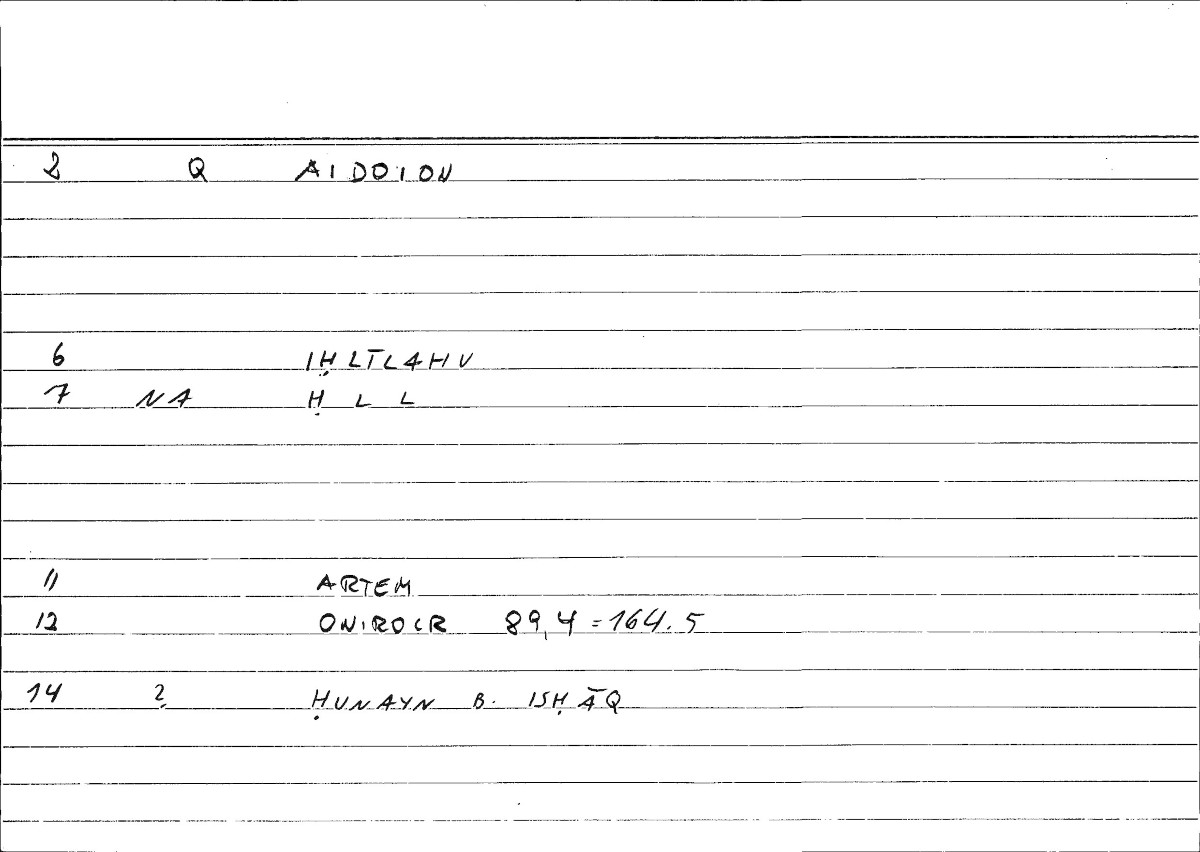 2 Q AIDOION
6 IḤLĪLAHU
7 NA Ḥ L L
11 ARTEM
12 ONIROCR 89,4 = 164.5
14 ? ḤUNAYN B. ISḤĀQ